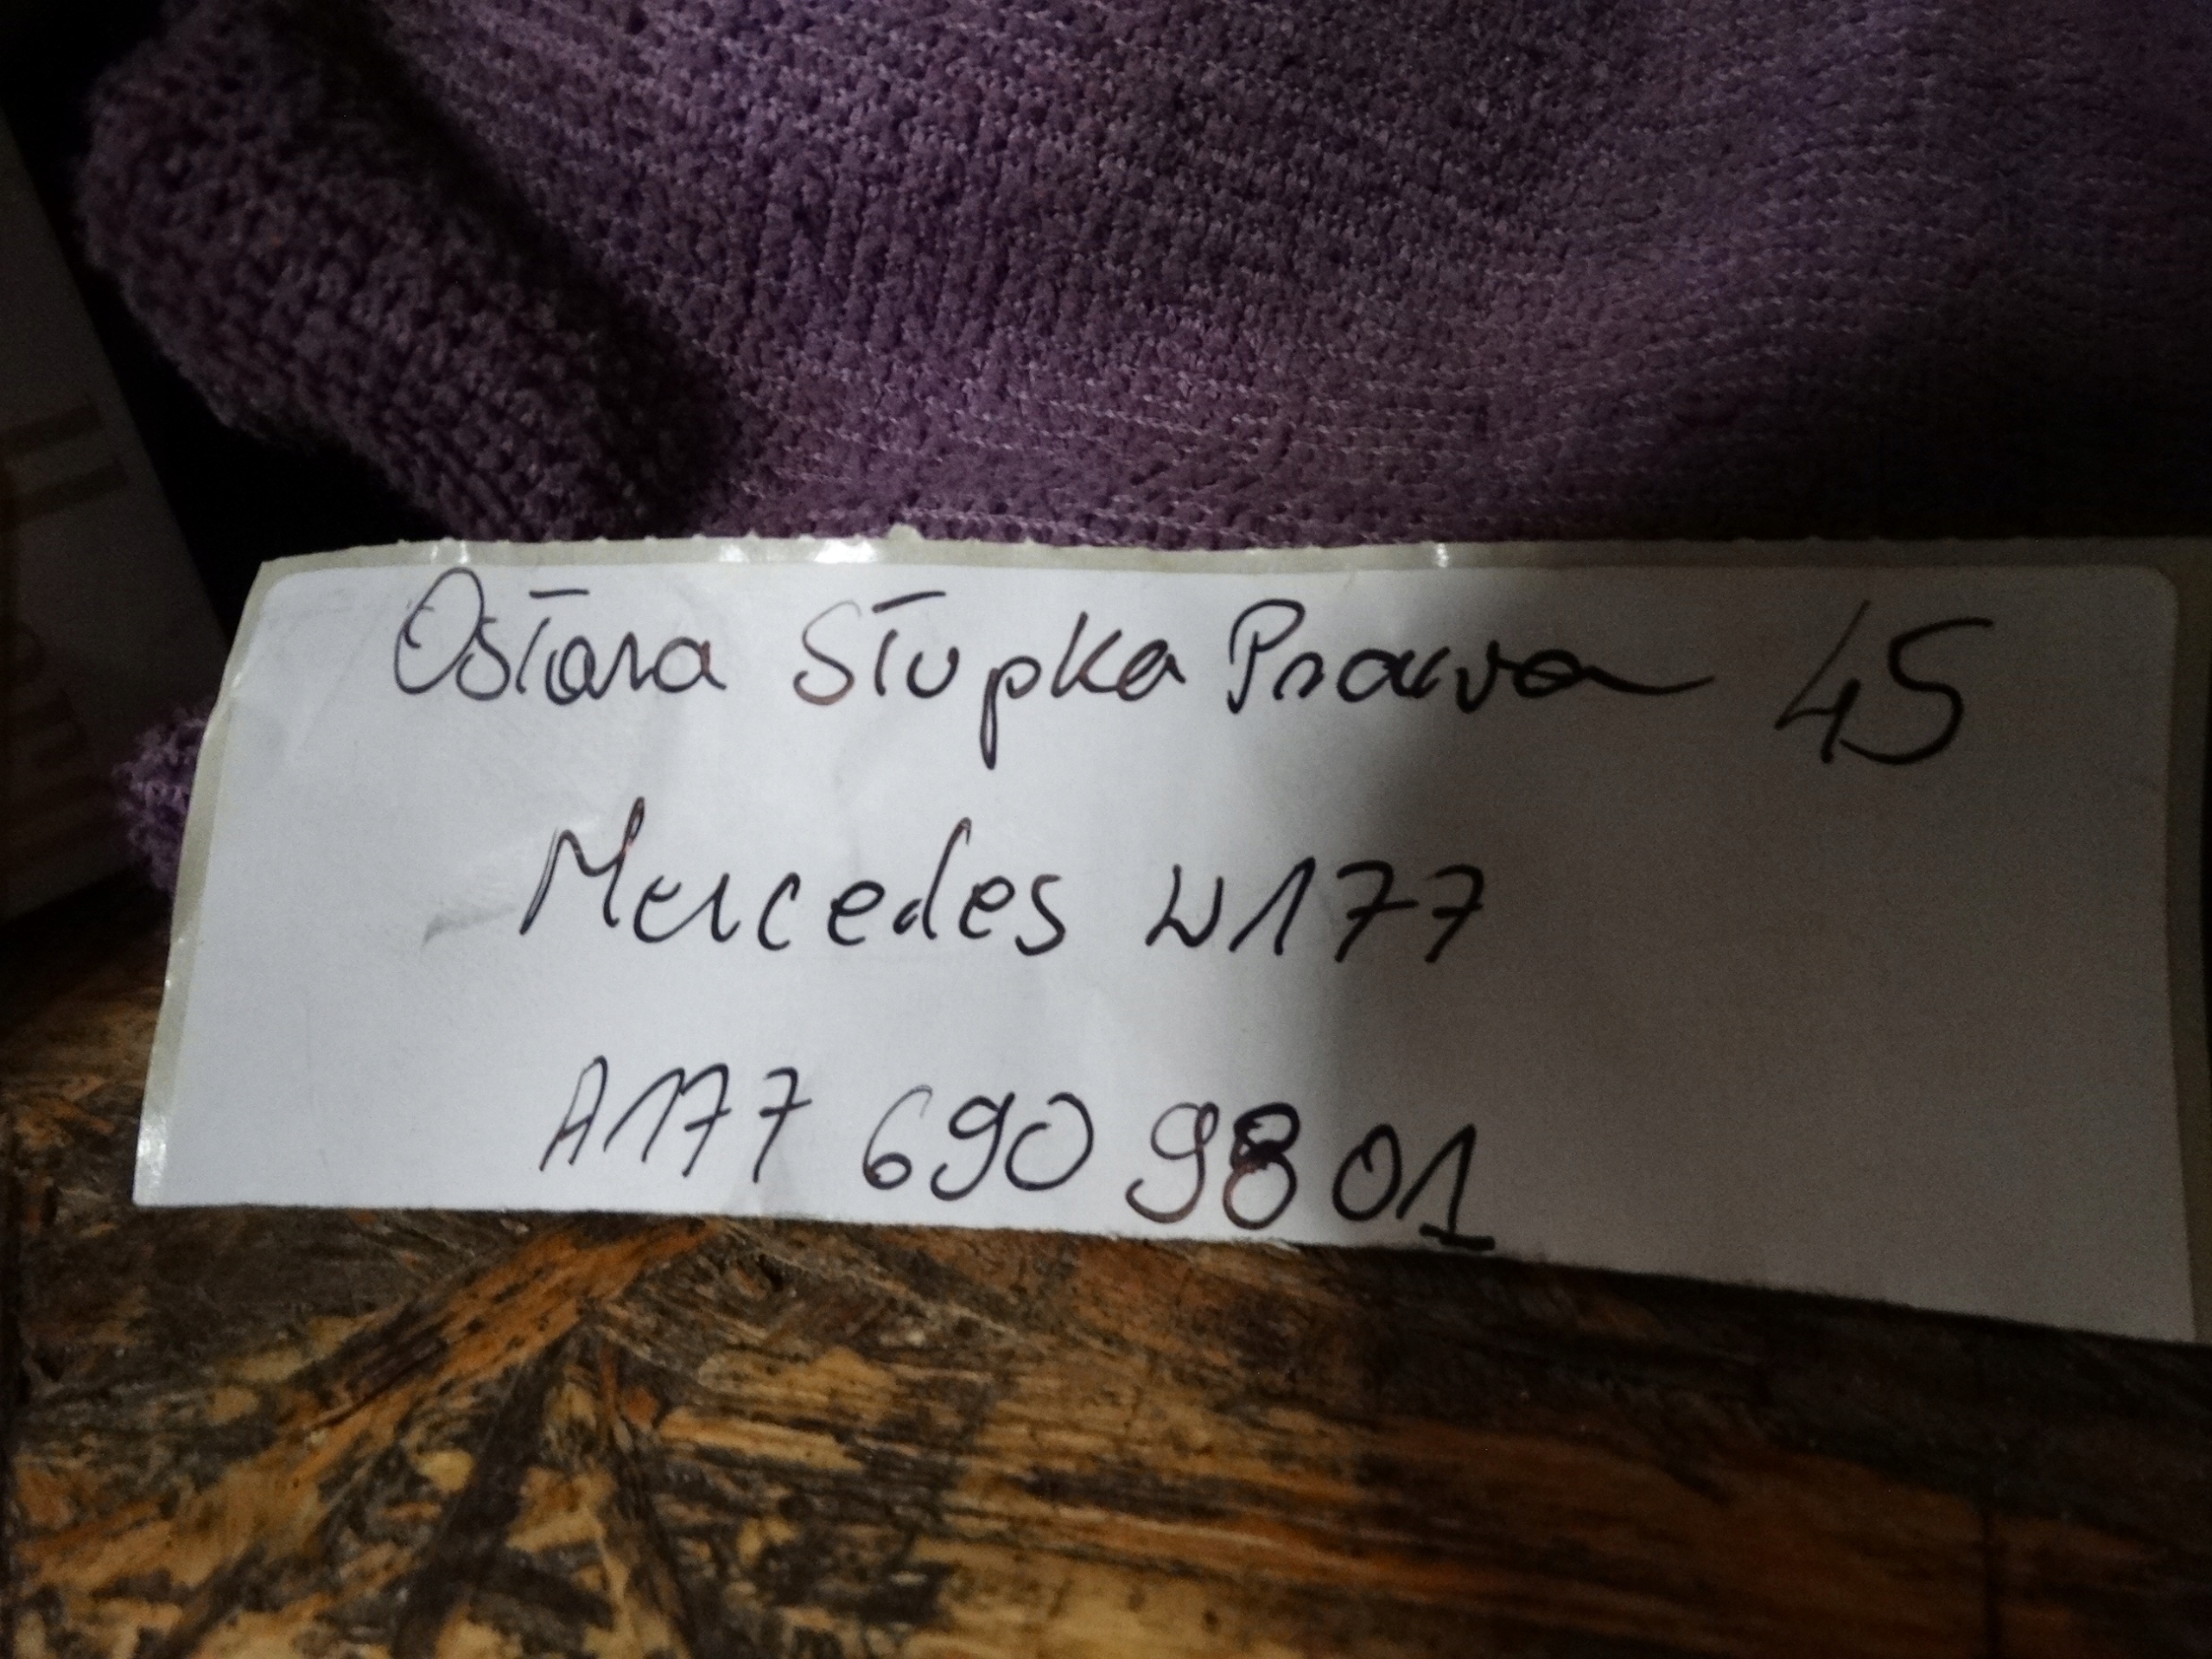 Osłona Słupka Prawa 45
Mercedes W177
A177 690 9801